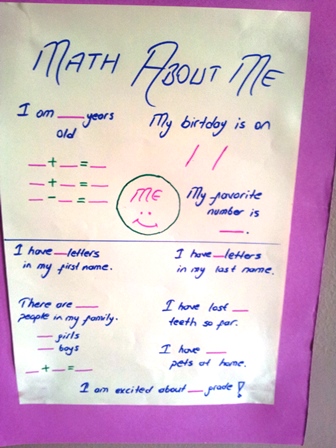 MATH ABOUT ME
I am ___ years
old
My birtday is on
/ /
__ + __ = __
__ + __ = __
__ - __ = __
ME
My favorite
number is
___.
I have __ letters
in my first name.
I have __ letters
in my last name.
There are ___
people in my family.
__ girls
__ boys
__ + __ = __
I have lost __
teeth so far.
I have ___
pets at home.
I am excited about __ grade!